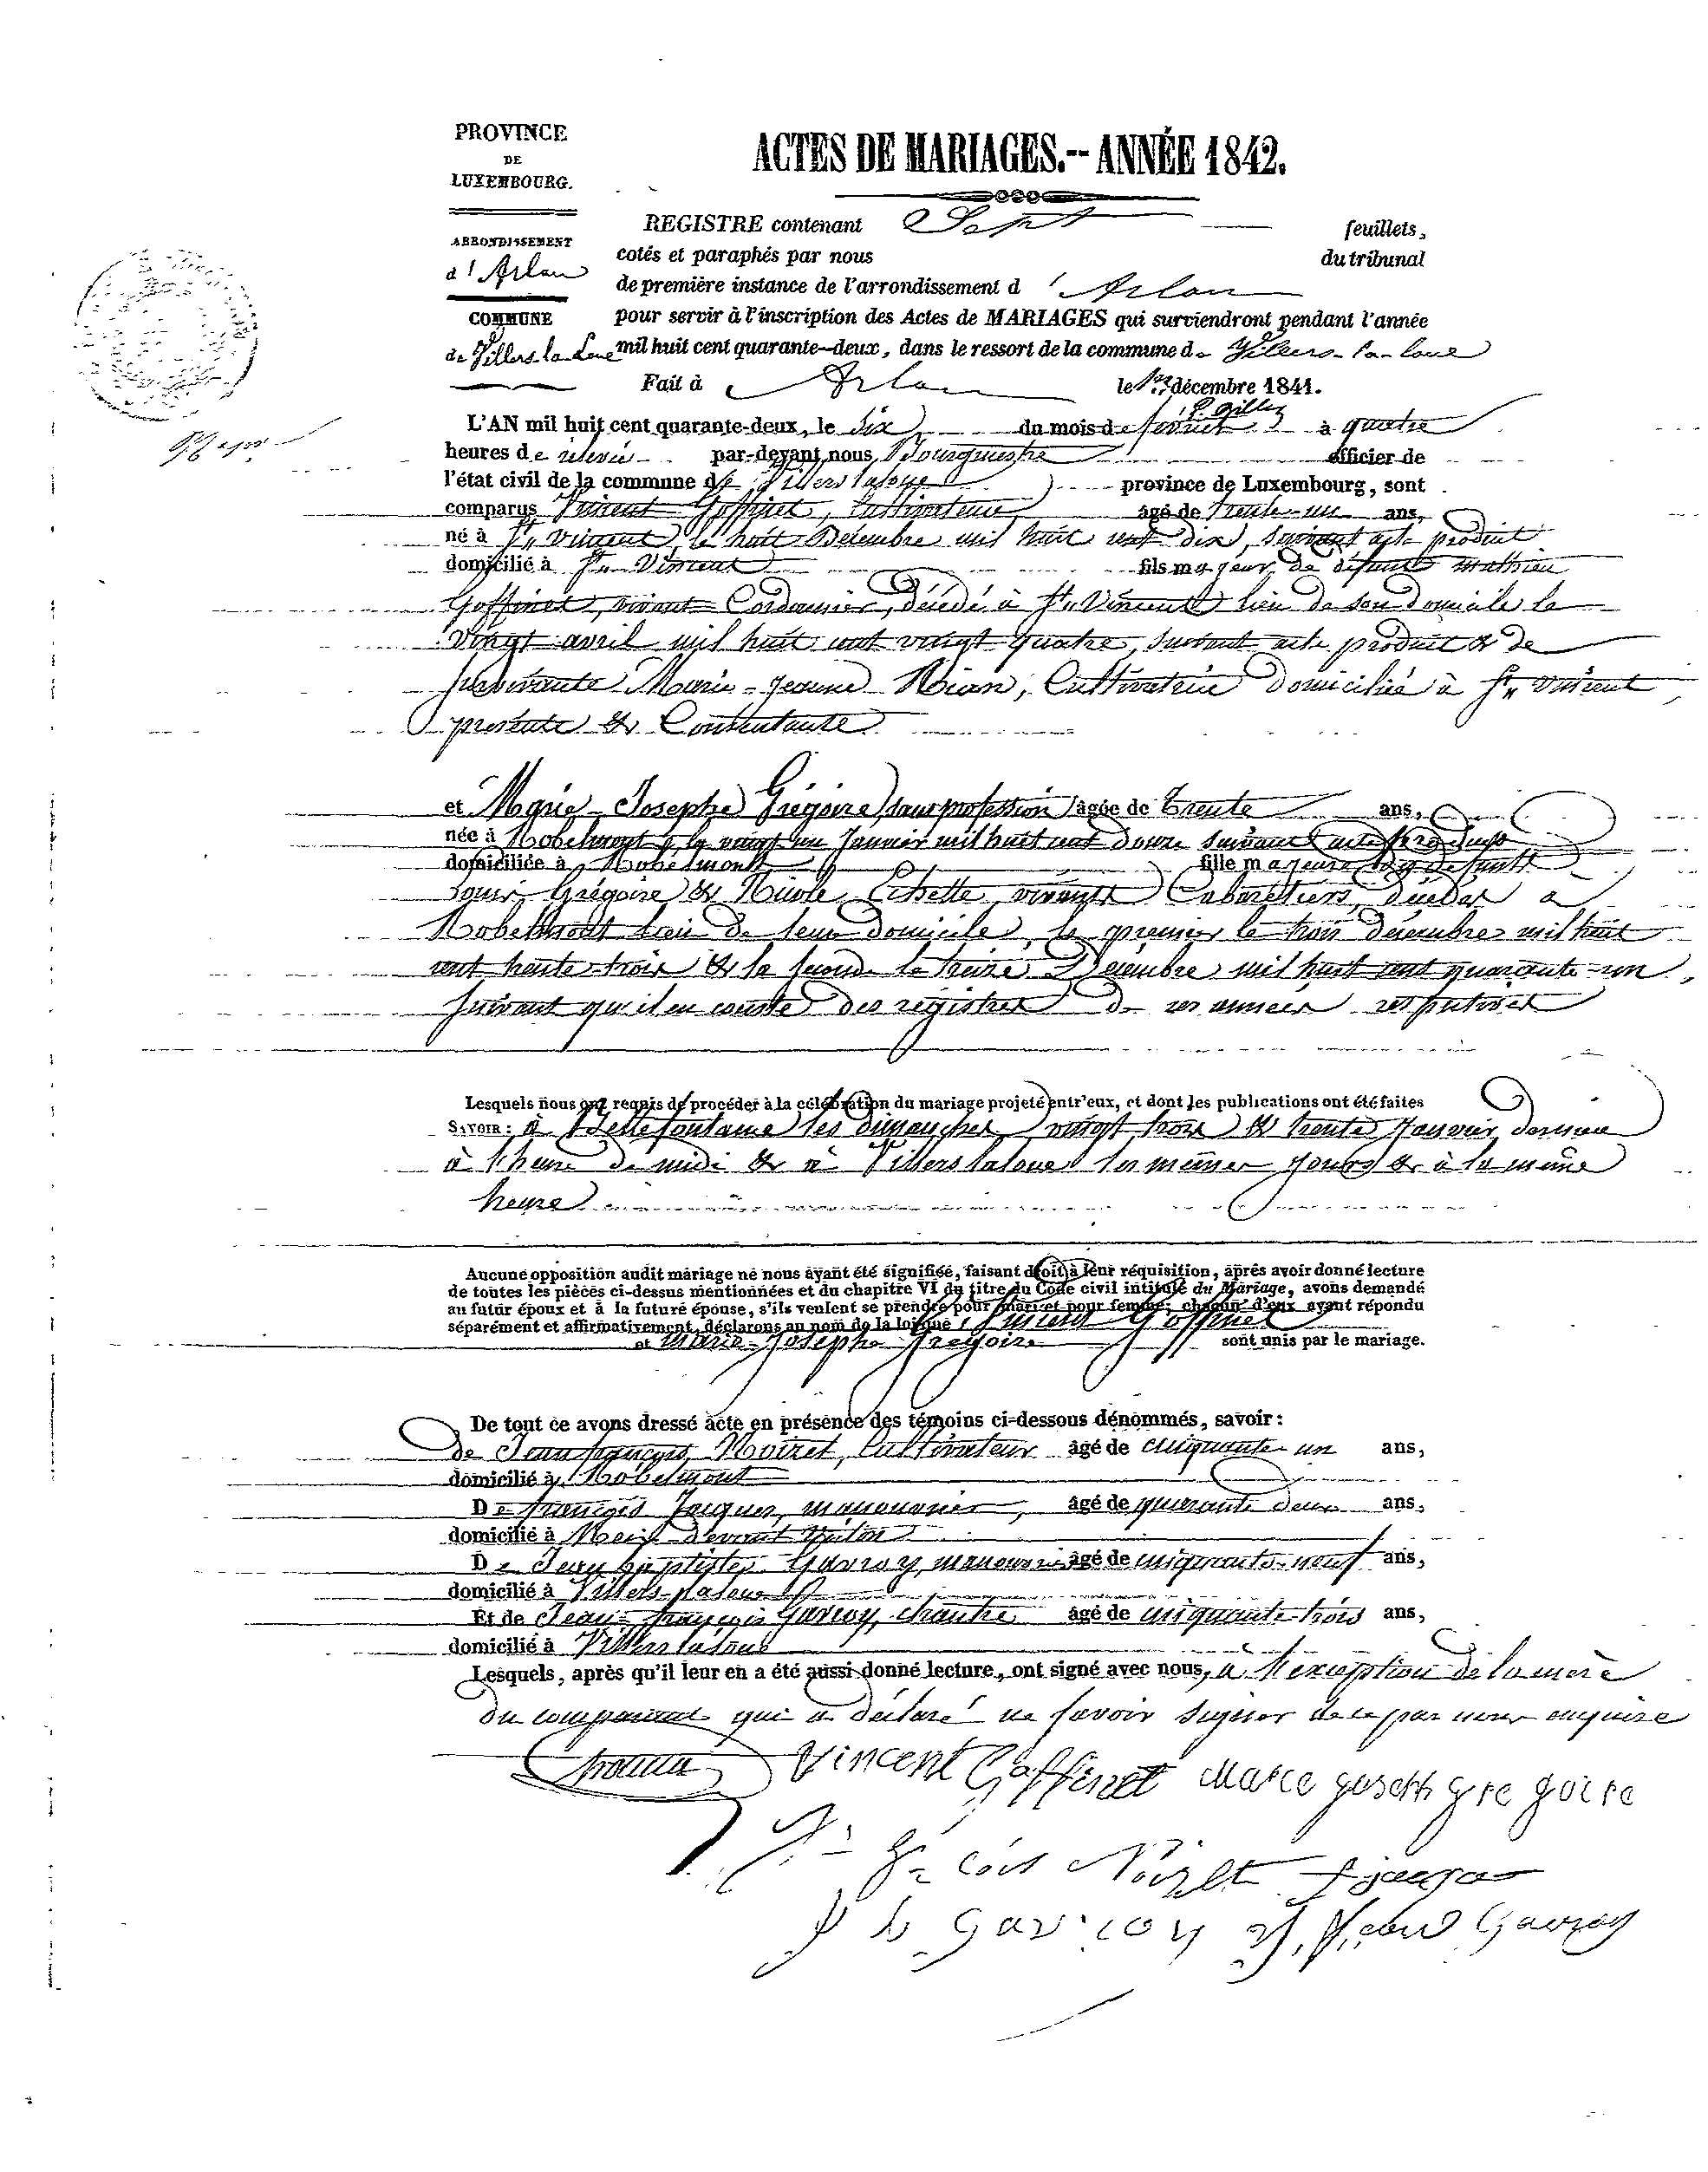 PROVINCE
DE
LUXEMBOURG.
ACTES DE MARIAGES.-- ANNÉE 1842.
REGISTRE contenant Sept feuillets,
ARRONDISSEMENT
d'Arlon
cotés et paraphés par nous du tribunal
de première instance de l'arrondissement d'Arlon
COMMUNE
de Villers-la-Loue
pour servir à l'inscription des Actes de MARIAGES qui surviendront pendant l'année
mil huit cent quarante-deux, dans le ressort de la commune de Villers-la-loue
Fait à Arlon le 1er décembre 1841.
L'AN mil huit cent quarante-deux, le six du mois de février à quatre
heures de relevée par-devant nous Bourguestre officier de
l'état civil de la commune de Villers laloue province de Luxembourg, sont
comparus Vincent Goffinet, Cultivateur âgé de trente-un ans,
né à St. Vincent, le huit Décembre mil huit cent dix, suivant acte produit
domicilié à St. Vincent fils majeur de défunt mathieu
Goffinet, vivant Cordonnier, décédé à St. Vincent lieu de son domicile le
vingt avril mil huit cent vingt quatre, suivant acte produit & de
survivante Marie-Jeanne, Cultivatrice domiciliée à St. Vincent
présente & Consentante
et Marie-Josephe Grégoire, sans profession âgée de trente ans,
née à Robelmont, le vingt un Janvier mil huit cent douze suivant acte produit
domiciliée à Robelmont fille majeure de défunts
Louis Grégoire & Nicole vivants Cabaretiers, décédés à
Robelmont lieu de leur domicile, le premier le trois décembre mil huit
cent trente-trois & la seconde le treize Décembre mil huit cent quarante-un,
suivant qu'il en conste des registres de ces années respectives
Lesquels nous ont requis de procéder à la célébration du mariage projeté entr'eux, et dont les publications ont été faites
SAVOIR: à Bellefontaine les dimanches vingt trois & trente Janvier dernier
à l'heure de midi & à Villers laloue les mêmes jours & à la même
heure
Aucune opposition audit mariage ne nous ayant été signifiée, faisant droit à leur réquisition, après avoir donné lecture
de toutes les pièces ci-dessus mentionnées et du chapitre VI du titre du Code civil intitulé du Mariage, avons demandé
au futur époux et à la future épouse, s'ils veulent se prendre pour mari et pour femme; chacun d'eux ayant répondu
séparément et affirmativement, déclarons au nom de la loi que Vincent Goffinet
et Marie-Josephe Grégoire sont unis par le mariage.
De tout ce avons dressé acte en présence des témoins ci-dessous dénommés, savoir:
de Jean françois Noizet, Cultivateur âgé de cinquante un ans,
domicilié à Robelmont
De françois Jacques, manouvrier, âgé de quarante deux ans,
domicilié à Meix-devant Virton
De Jean baptiste Gavroy, manouvrier âgé de cinquante-neuf ans,
domicilié à Villers-laloue
Et de Jean-françois Gavroy, chantre âgé de cinquante-trois ans,
domicilié à Villers laloue
Lesquels, après qu'il leur en a été aussi donné lecture, ont signé avec nous, à l'exception de la mère
du comparant qui a déclaré ne savoir signer de ce par nous enquise
Vincent Goffinet Marie joseph gregoire
Noizet
Gavroy Gavroy